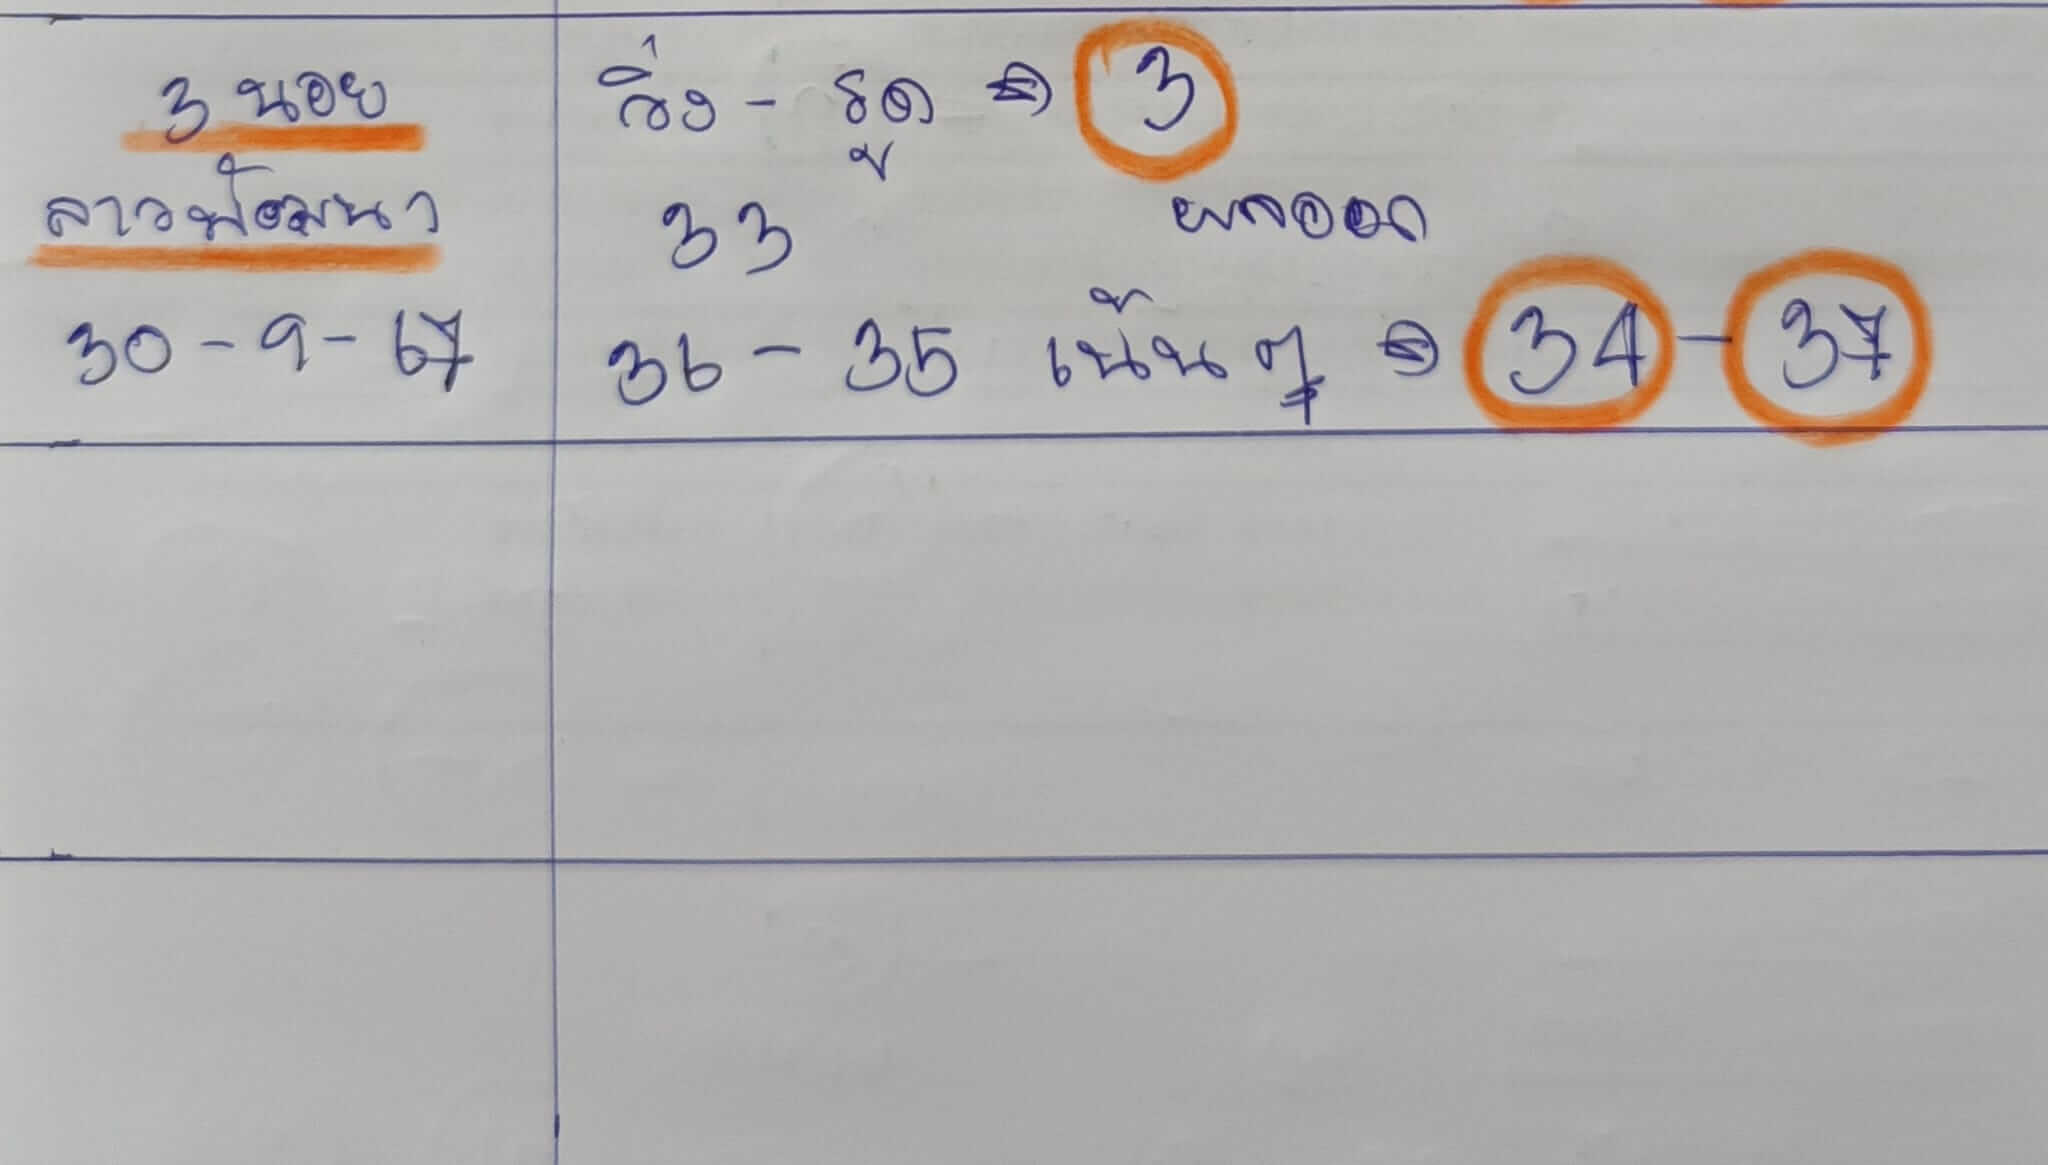 3 นอย
ลาวพัฒนา
30-9-67
วิ่ง - รูด → 3
33 ผลออก
36 - 35 เน้นๆ → 34 - 37